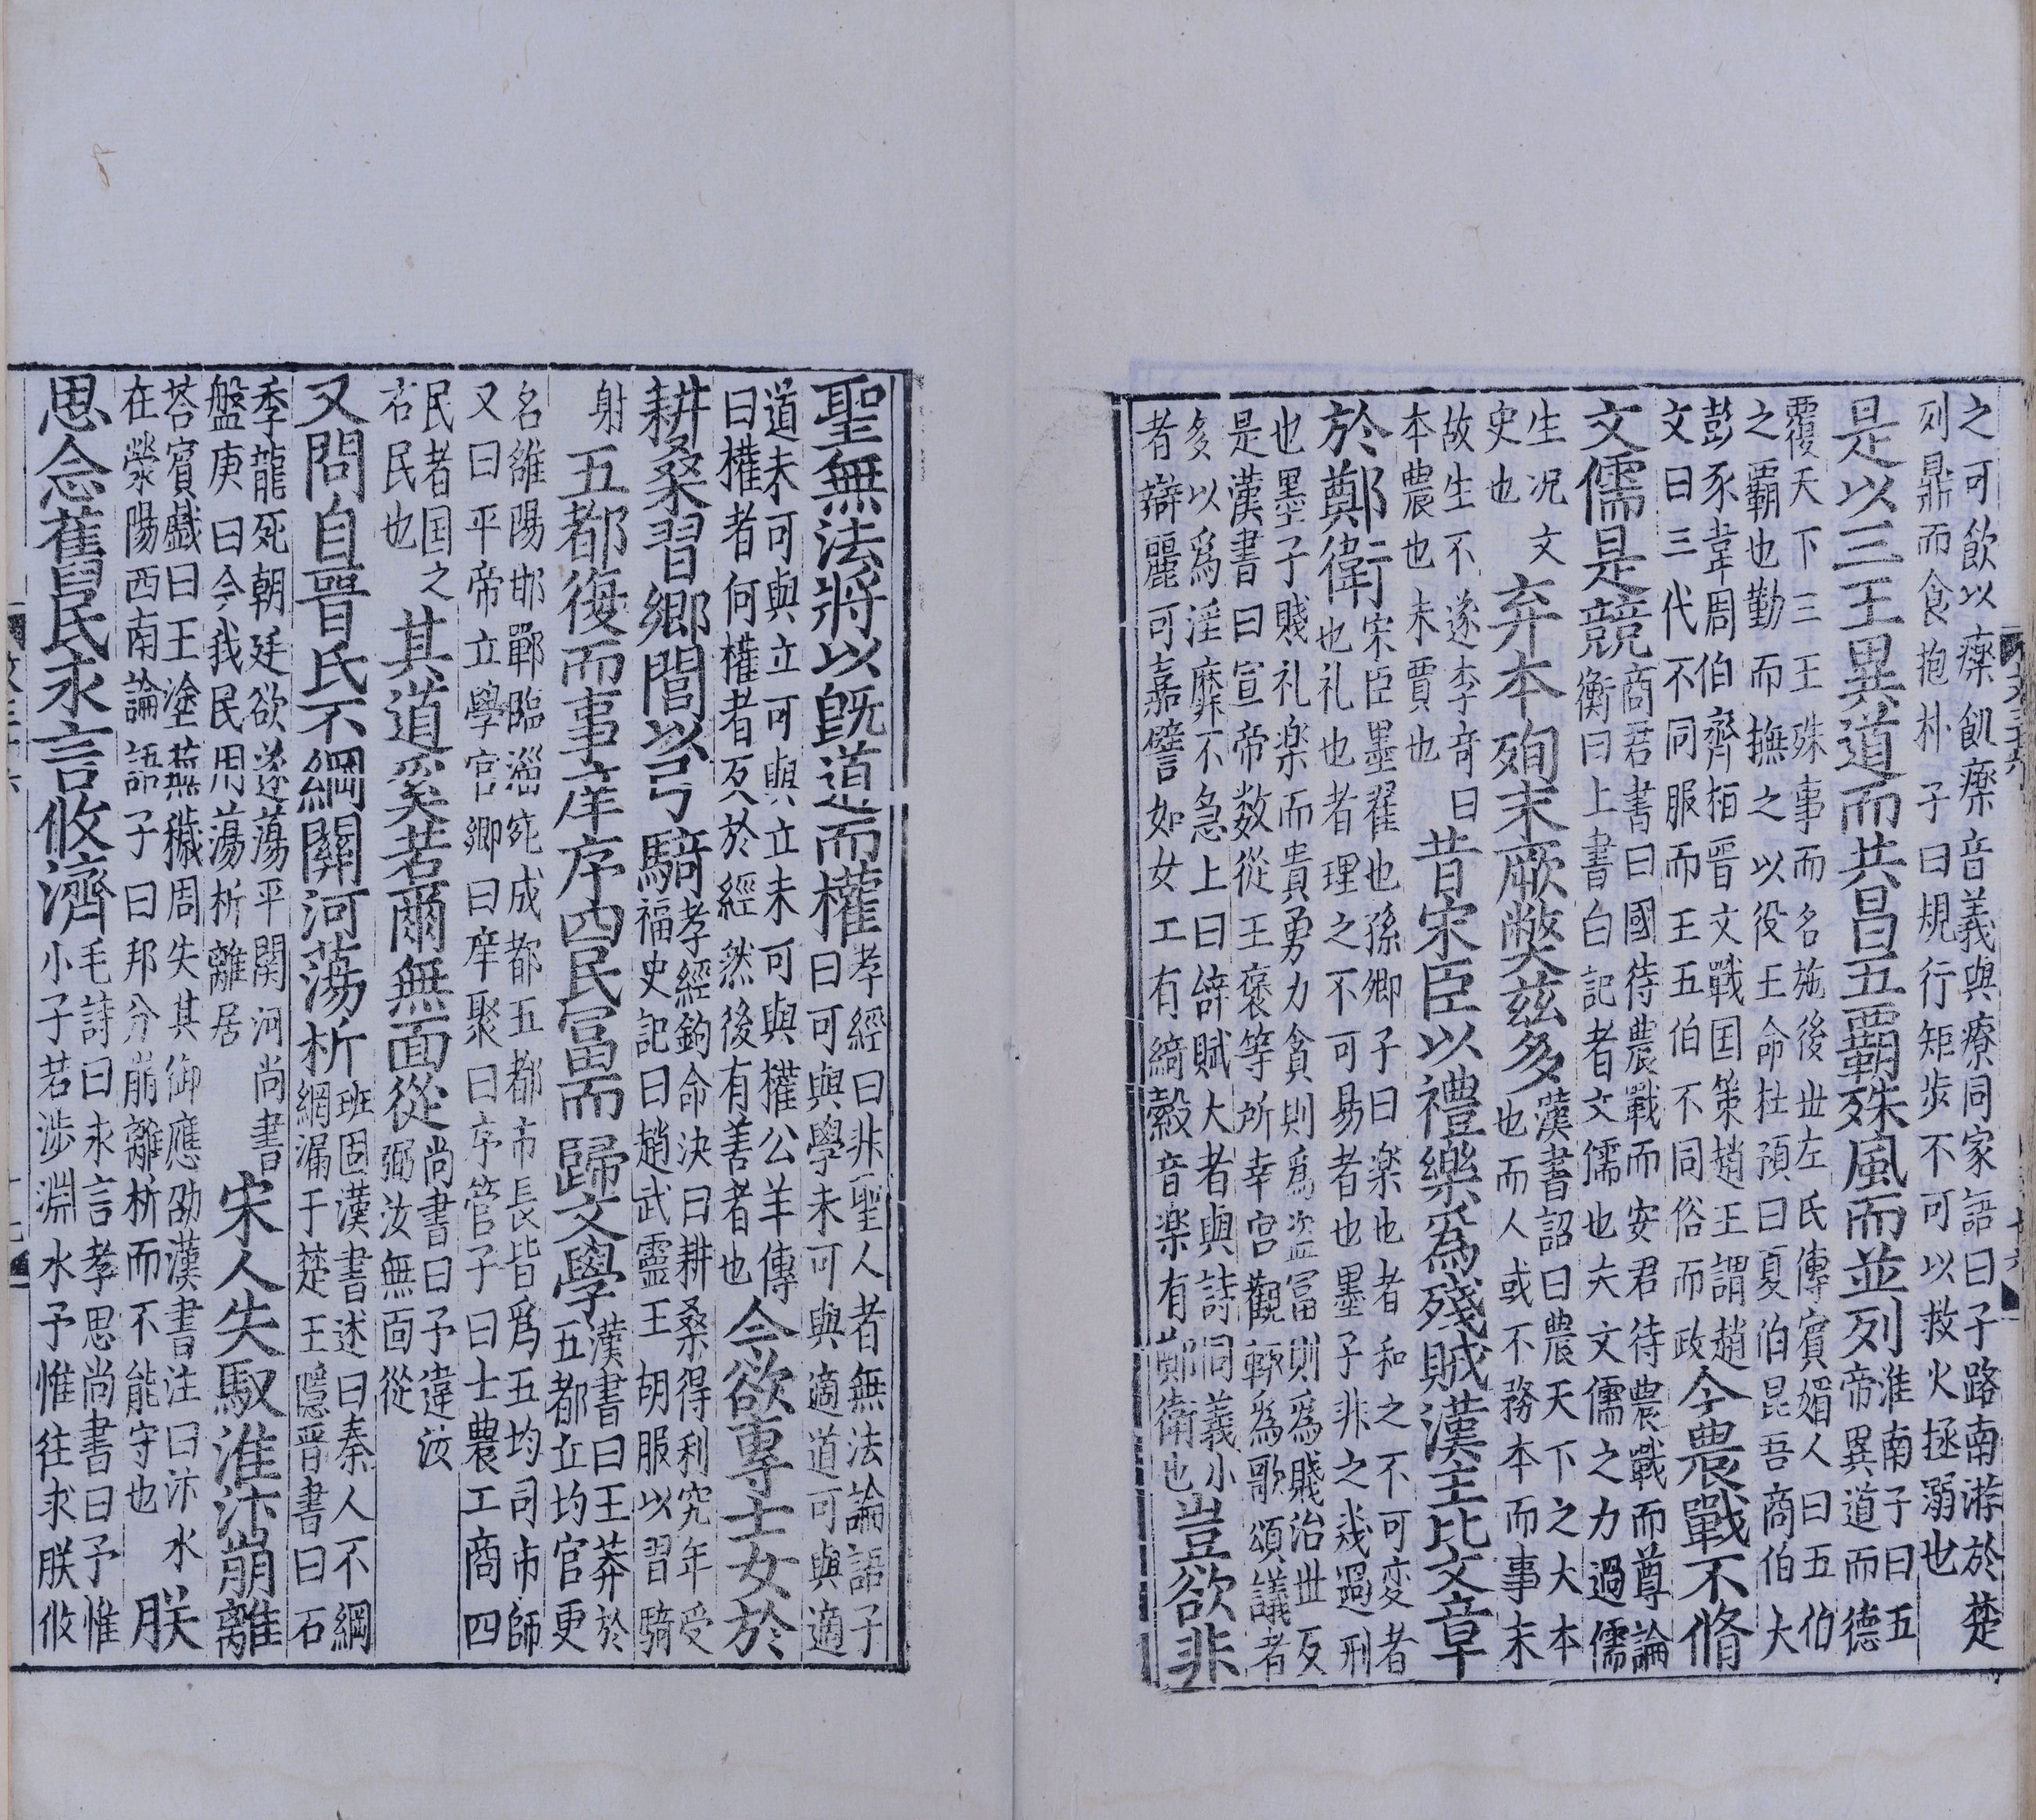 之可飲以𤻲飢𤻲音義與療同家語曰子路南游於楚
列鼎而食抱朴子曰規行矩步不可以救火拯溺也
是以三王異道而共昌五覇殊風而並列淮南子曰五
帝異道而德
覆天下三王殊事而名施後丗左氏傳賓媚人曰五伯
之覇也勤而撫之以役王命杜預曰夏伯昆吾商伯大
彭豕韋周伯齊桓晉文戰国策趙王謂趙
文曰三代不同服而王五伯不同俗而政今農戰不脩
文儒是競商君書曰國待農戰而安君待農戰而尊論
衡曰上書白記者文儒也夫文儒之力過儒
生况文
史也弃本殉末厥弊兹多漢書詔曰農天下之大本
也而人或不務本而事末
故生不遂李竒曰
本農也末賈也昔宋臣以禮樂爲殘賊漢主比文章
於鄭衛宋臣墨翟也孫卿子曰楽也者和之不可変者
也礼也者理之不可易者也墨子非之㡬過刑
也墨子賤礼楽而貴勇力貪則爲盗冨則爲賤治丗反
是漢書曰宣帝数從王褒等所幸宫觀輙爲歌頌議者
多以爲淫靡不急上曰辝賦大者與詩同義小
者辯麗可嘉譬如女工有綺縠音楽有鄭衛也豈欲非
聖無法將以旣道而權孝經曰非聖人者無法論語子
曰可與學未可與適道可與適
道未可與立可與立未可與權公羊傳
曰權者何權者反於經然後有善者也今欲專士女於
耕桑習鄉閭以弓騎孝經鉤命決曰耕桑得利究年受
福史記曰趙武靈王胡服以習騎
射五都復而事庠序四民冨而歸文學漢書曰王莽於
五都立均官更
名雒陽邯鄲臨淄宛成都五都市長皆爲五均司市師
又曰平帝立學官鄉曰庠聚曰序管子曰士農工商四
民者国之
石民也其道奚若爾無面從尚書曰予違汝
弼汝無面從
又問自晉氏不綱關河蕩析班固漢書述曰秦人不綱
網漏于楚王隱晋書曰石
季龍死朝廷欲遂蕩平關河尚書
盤庚曰今我民用蕩析離居宋人失馭淮汴崩離
荅賓戲曰王塗蕪穢周失其御應劭漢書注曰汴水
在滎陽西南論語子曰邦分崩離析而不能守也朕
思念舊民永言攸濟毛詩曰永言孝思尚書曰予惟
小子若涉淵水予惟往求朕攸